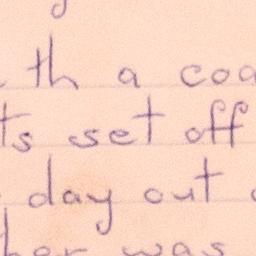 th a coa
ts set off
day out
her was